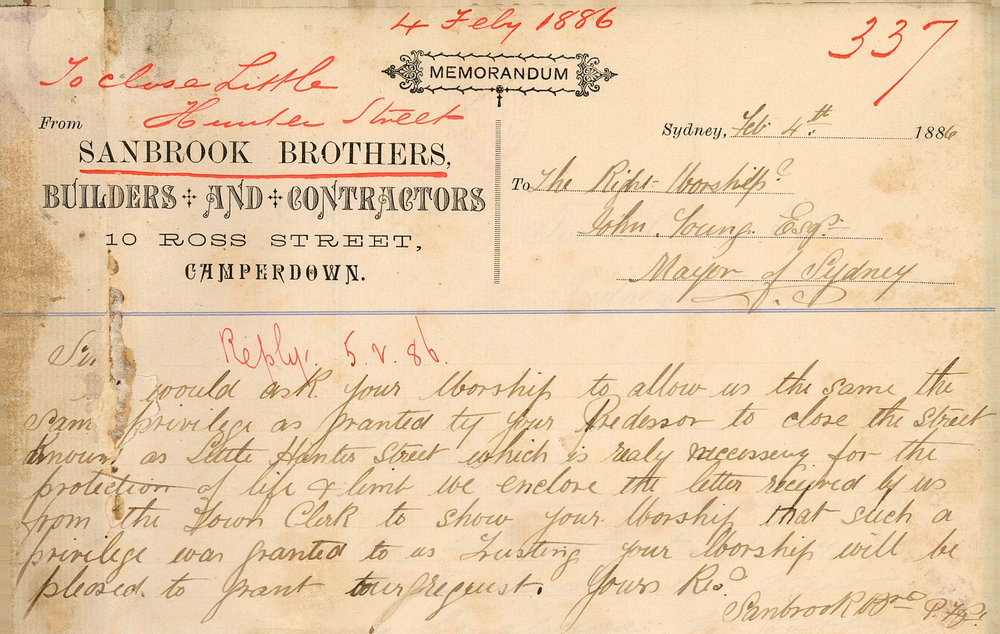 4 Feby 1886
337
To close Little
Hunter Street
MEMORANDUM
From
SANBROOK BROTHERS,
BUILDERS AND CONTRACTORS
10 ROSS STREET,
CAMPERDOWN.
Sydney, Feb 4th 1886
To The Right Worshipl
John Young Esqr
Mayor of Sydney
Reply, 5.2.86.
Sir
would ask your Worship to allow us the same the
same privilege as granted by your Predessor to close the street
known as Little Hunter Street which is realy neccessery for the
protection of life & limb we enclose the letter received by us
from the Town Clerk to show your Worship that such a
privilege was granted to us Trusting your Worship will be
pleased to grant our request. Yours Rec
Sanbrook Bros